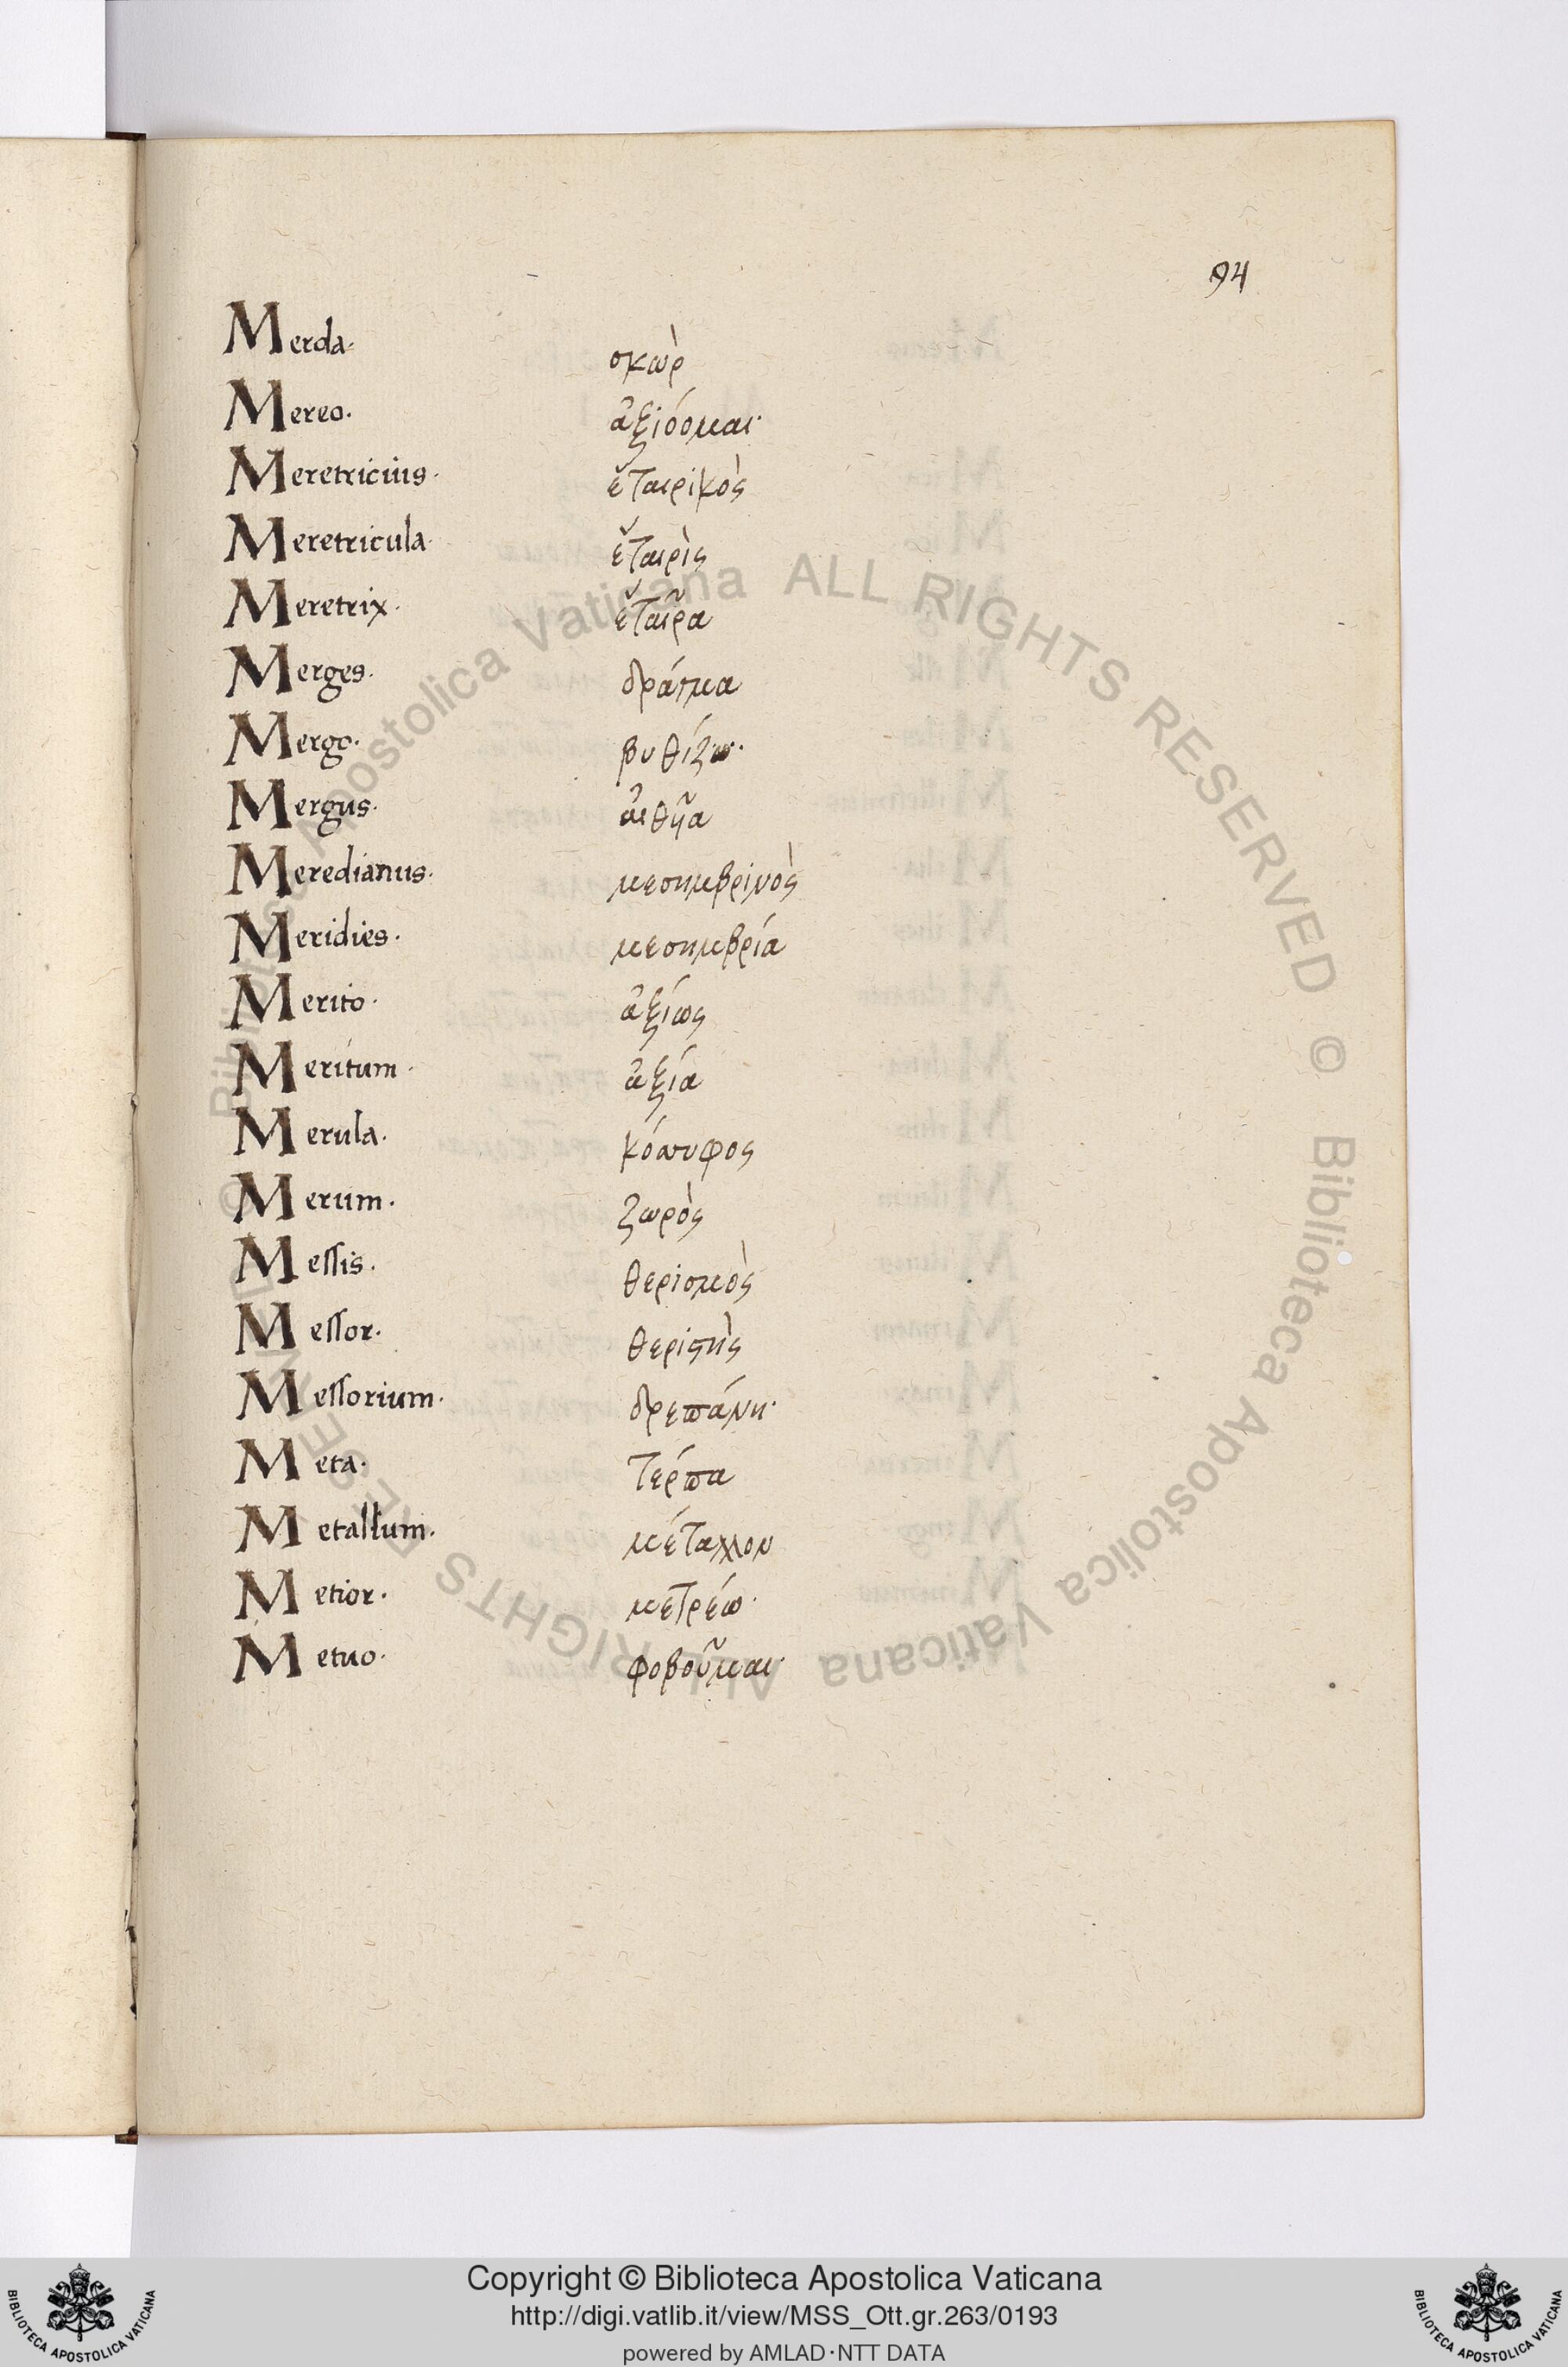 94
Merda· σκωρ̀
Mereo· ἀξιόομαι·
Meretricius· ἑταιρικὸς
Meretricula ἑταιρὶς
Meretrix· ἑταῖρα
Merges· δράγμα
Mergo· βυθίζω·
Mergus· αἰθῆα
Meredianus· μεσημβρινὸς
Meridies· μεσημβρία
Merito· ἀξίως
Meritum· ἀξία
Merula· κόσσυφος
Merum· ζωρὸς
Messis· θερισμὸς
Messor· θεριστὴς
Messorium· δρεπάνη·
Meta· τέρπα
Metallum· μέταλλον
Metior· μετρέω·
Metuo· φοβοῦμαι·
© Biblioteca Apostolica Vaticana ALL RIGHTS RESERVED © Biblioteca Apostolica Vaticana ALL RIGHTS RESERVED
Copyright © Biblioteca Apostolica Vaticana
http://digi.vatlib.it/view/MSS_Ott.gr.263/0193
powered by AMLAD·NTT DATA
BIBLIOTECA APOSTOLICA VATICANA
BIBLIOTECA APOSTOLICA VATICANA